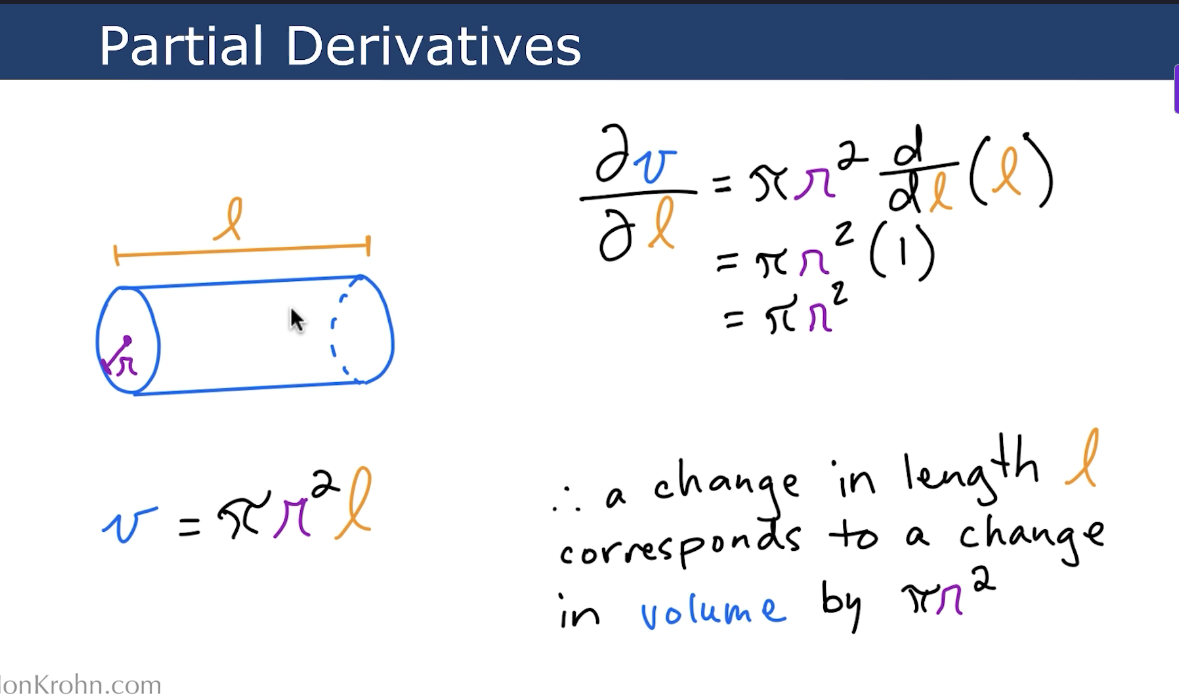 Partial Derivatives
l
r
v = πr²l
∂v/∂l = πr² d/dl (l)
= πr² (1)
= πr²
∴ a change in length l
corresponds to a change
in volume by πr²
JonKrohn.com